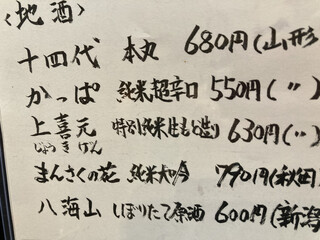 〈地酒〉
十四代 本丸 680円(山形
かっぱ 純米超辛口 550円(〃)
上喜元 特別純米生もと造り 630円(〃)
じょうきげん
まんさくの花 純米大吟 790円(秋田
八海山 しぼりたて原酒 600円(新潟